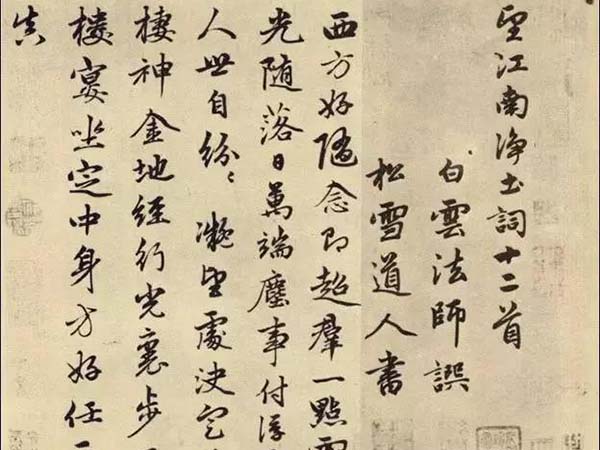 望江南净土詞十二首
白雲法師譔
松雪道人書
西方好随念即超羣一點
光随落日萬端塵事付浮
人世自紛〻凝望處決定
棲神金地經行光裏步
樓宴坐定中身方好任
真